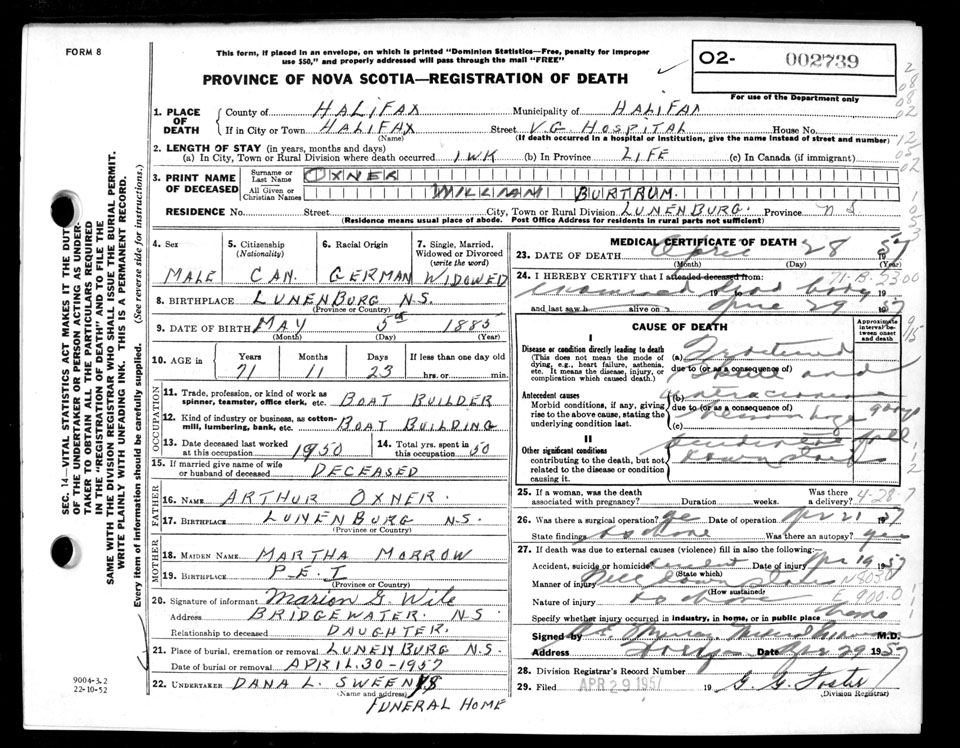 FORM 8
This form, if placed in an envelope, on which is printed "Dominion Statistics—Free, penalty for improper
use $50," and properly addressed will pass through the mail "FREE"
PROVINCE OF NOVA SCOTIA—REGISTRATION OF DEATH
02- 002739
For use of the Department only
1. PLACE OF DEATH
County of HALIFAX Municipality of HALIFAX
If in City or Town HALIFAX Street V.G. HOSPITAL House No.
(Name) (If death occurred in a hospital or institution, give the name instead of street and number)
2. LENGTH OF STAY (in years, months and days)
(a) In City, Town or Rural Division where death occurred 1 WK (b) In Province LIFE (c) In Canada (if immigrant)
3. PRINT NAME OF DECEASED
Surname or Last Name OXNER
All Given or Christian Names WILLIAM BURTRUM.
RESIDENCE No. Street City, Town or Rural Division LUNENBURG. Province N S
(Residence means usual place of abode. Post Office Address for residents in rural parts not sufficient)
4. Sex 5. Citizenship (Nationality) 6. Racial Origin 7. Single, Married, Widowed or Divorced (write the word)
MALE CAN. GERMAN WIDOWED
8. BIRTHPLACE LUNENBURG N.S.
(Province or Country)
9. DATE OF BIRTH MAY 5th 1885
(Month) (Day) (Year)
10. AGE in Years Months Days If less than one day old
71 11 23 hrs. or min.
OCCUPATION
11. Trade, profession, or kind of work as spinner, teamster, office clerk, etc. BOAT BUILDER
12. Kind of industry or business, as cotton-mill, lumbering, bank, etc. BOAT BUILDING
13. Date deceased last worked at this occupation 1950 14. Total yrs. spent in this occupation 50
15. If married give name of wife or husband of deceased DECEASED
FATHER
16. NAME ARTHUR OXNER.
17. BIRTHPLACE LUNENBURG N.S.
(Province or Country)
MOTHER
18. MAIDEN NAME MARTHA MORROW
19. BIRTHPLACE P.E.I
(Province or Country)
20. Signature of informant Marion G. Wile
Address BRIDGEWATER. N.S
Relationship to deceased DAUGHTER.
21. Place of burial, cremation or removal LUNENBURG N.S.
Date of burial or removal APRIL.30-1957
22. UNDERTAKER DANA L. SWEENY'S
(Name and address)
FUNERAL HOME
9004-3.2
22-10-52
SEC. 14—VITAL STATISTICS ACT MAKES IT THE DUTY
OF THE UNDERTAKER OR PERSON ACTING AS UNDER-
TAKER TO OBTAIN ALL THE PARTICULARS REQUIRED
IN THE "REGISTRATION OF DEATH" AND TO FILE THE
SAME WITH THE DIVISION REGISTRAR WHO SHALL ISSUE THE BURIAL PERMIT.
WRITE PLAINLY WITH UNFADING INK. THIS IS A PERMANENT RECORD.
Every item of information should be carefully supplied. (See reverse side for instructions.)
MEDICAL CERTIFICATE OF DEATH
23. DATE OF DEATH April 28 57
(Month) (Day) (Year)
24. I HEREBY CERTIFY that I attended deceased from:
examined dead body 19
and last saw h alive on April 29 1957
CAUSE OF DEATH
Approximate interval between onset and death
I
Disease or condition directly leading to death
(This does not mean the mode of dying, e.g., heart failure, asthenia, etc. It means the disease, injury, or complication which caused death.)
(a) Fractured
due to (or as a consequence of)
skull and
Antecedent causes
Morbid conditions, if any, giving rise to the above cause, stating the underlying condition last.
(b)
due to (or as a consequence of)
(c)
II
Other significant conditions
contributing to the death, but not related to the disease or condition causing it.
fall
down stairs
25. If a woman, was the death associated with pregnancy? Duration weeks. Was there a delivery? 4-28-7
26. Was there a surgical operation? yes Date of operation Apr 21 1957
State findings as above Was there an autopsy? yes
27. If death was due to external causes (violence) fill in also the following:
Accident, suicide or homicide accident Date of injury Apr 19 1957
(State which)
Manner of injury Fell down stairs N803
(How sustained)
Nature of injury as above E 900.0
Specify whether injury occurred in industry, in home, or in public place home
Signed by Murray M.D.
Address Date Apr 29 1957
28. Division Registrar's Record Number
29. Filed APR 29 1957 19 G. G. Foster
(Division Registrar)